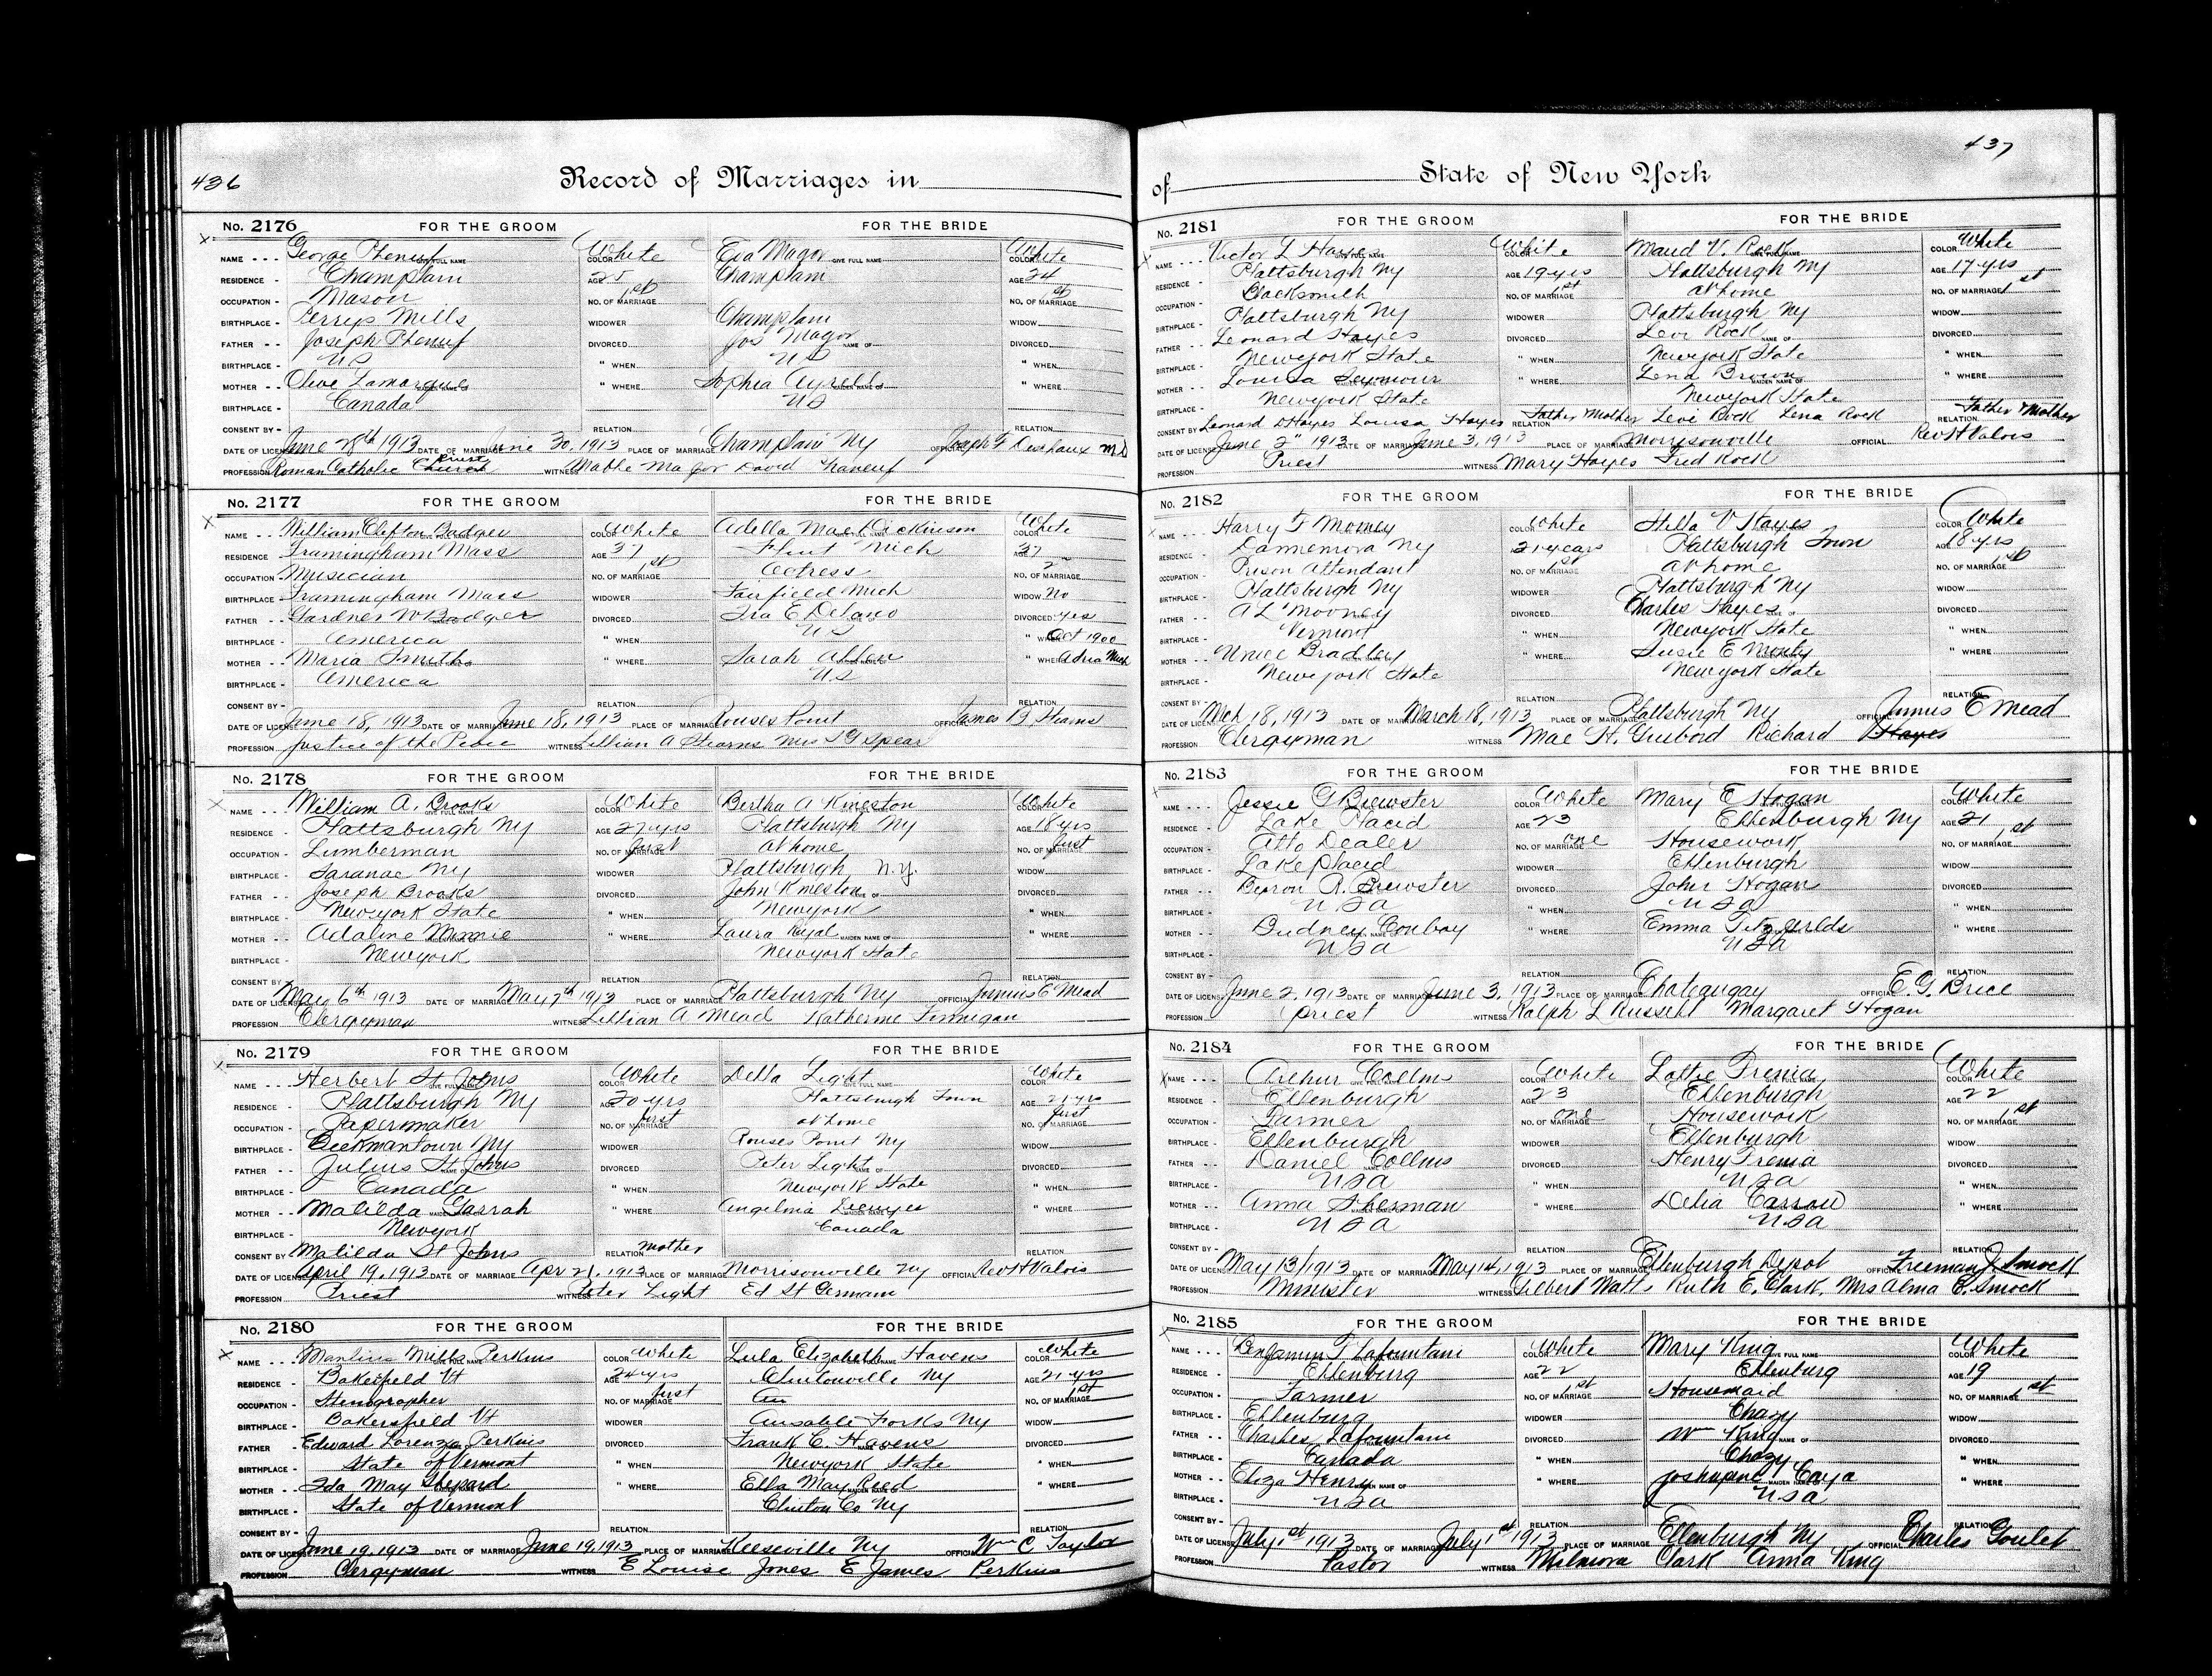 436
Record of Marriages in
No. 2176 FOR THE GROOM FOR THE BRIDE
NAME George Pheneuf GIVE FULL NAME COLOR White Eva Magor GIVE FULL NAME COLOR White
RESIDENCE Champlain AGE 25 Champlain AGE 24
OCCUPATION Mason NO. OF MARRIAGE 1st NO. OF MARRIAGE 1st
BIRTHPLACE Perrys Mills WIDOWER Champlain WIDOW
FATHER Joseph Pheneuf DIVORCED Jos Magor NAME OF DIVORCED
BIRTHPLACE US " WHEN US " WHEN
MOTHER Olive Lamarque " WHERE Sophia " WHERE
BIRTHPLACE Canada US
CONSENT BY RELATION RELATION
DATE OF LICENSE June 28th 1913 DATE OF MARRIAGE June 30, 1913 PLACE OF MARRIAGE Champlain NY OFFICIAL Joseph F
PROFESSION Roman Catholic Church Priest WITNESS Magor David
No. 2177 FOR THE GROOM FOR THE BRIDE
NAME William Clifton Badger COLOR White Adella Mae Dickinson COLOR White
RESIDENCE Framingham Mass AGE 37 Flint Mich AGE 37
OCCUPATION Musician NO. OF MARRIAGE 1st Actress NO. OF MARRIAGE 2
BIRTHPLACE Framingham Mass WIDOWER Fairfield Mich WIDOW No
FATHER Gardner W Badger DIVORCED Ira E Delano DIVORCED yes
BIRTHPLACE America " WHEN US " WHEN Oct 1900
MOTHER Maria Smith " WHERE Sarah Allen " WHERE Mich
BIRTHPLACE America U.S
CONSENT BY RELATION RELATION
DATE OF LICENSE June 18, 1913 DATE OF MARRIAGE June 18, 1913 PLACE OF MARRIAGE Rouses Point OFFICIAL James B, Stearns
PROFESSION Justice of the Peace WITNESS Lillian A Stearns Mrs Spear
No. 2178 FOR THE GROOM FOR THE BRIDE
NAME William A. Brooks GIVE FULL NAME COLOR White Bertha A Kineston COLOR White
RESIDENCE Plattsburgh NY AGE 27 yrs Plattsburgh NY AGE 18 yrs
OCCUPATION Lumberman NO. OF MARRIAGE first at home NO. OF MARRIAGE first
BIRTHPLACE Saranac NY WIDOWER Plattsburgh N.Y. WIDOW
FATHER Joseph Brooks DIVORCED John Kineston NAME OF DIVORCED
BIRTHPLACE Newyork State " WHEN Newyork " WHEN
MOTHER Adaline Minnie " WHERE Laura MAIDEN NAME OF " WHERE
BIRTHPLACE Newyork Newyork State
CONSENT BY RELATION RELATION
DATE OF LICENSE May 6th 1913 DATE OF MARRIAGE May 7th 1913 PLACE OF MARRIAGE Plattsburgh NY OFFICIAL Junius E Mead
PROFESSION Clergyman WITNESS Lillian A Mead Katherine Finnigan
No. 2179 FOR THE GROOM FOR THE BRIDE
NAME Herbert St Johns GIVE FULL NAME COLOR White Della Light GIVE FULL NAME COLOR White
RESIDENCE Plattsburgh NY AGE 20 yrs Plattsburgh Town AGE 21 yrs
OCCUPATION Papermaker NO. OF MARRIAGE first at home NO. OF MARRIAGE first
BIRTHPLACE Beekmantown NY WIDOWER Rouses Point NY WIDOW
FATHER Julius St Johns DIVORCED Peter Light NAME OF DIVORCED
BIRTHPLACE Canada " WHEN Newyork State " WHEN
MOTHER Matilda Garrah " WHERE Angelina " WHERE
BIRTHPLACE Newyork Canada
CONSENT BY Matilda St Johns RELATION mother RELATION
DATE OF LICENSE April 19, 1913 DATE OF MARRIAGE Apr 21, 1913 PLACE OF MARRIAGE Morrisonville NY OFFICIAL Rev H Valois
PROFESSION Priest WITNESS Peter Light Ed St Germain
No. 2180 FOR THE GROOM FOR THE BRIDE
NAME Mills Perkins COLOR White Lula Elizabeth Havens COLOR White
RESIDENCE Bakersfield Vt AGE 24 yrs Clintonville NY AGE 21 yrs
OCCUPATION Stenographer NO. OF MARRIAGE first Au NO. OF MARRIAGE 1st
BIRTHPLACE Bakersfield Vt WIDOWER Ausable Forks NY WIDOW
FATHER Edward Lorenzo Perkins DIVORCED Frank C. Havens DIVORCED
BIRTHPLACE State of Vermont " WHEN Newyork State " WHEN
MOTHER Ida May Shepard " WHERE Ella May Reed " WHERE
BIRTHPLACE State of Vermont Clinton Co NY
CONSENT BY RELATION RELATION
DATE OF LICENSE June 19, 1913 DATE OF MARRIAGE June 19, 1913 PLACE OF MARRIAGE Keeseville NY OFFICIAL Wm C Taylor
PROFESSION Clergyman WITNESS E Louise Jones E James Perkins
437
of State of New York
No. 2181 FOR THE GROOM FOR THE BRIDE
NAME Victor L Hayes COLOR White Maud V. Rock COLOR White
RESIDENCE Plattsburgh NY AGE 19 yrs Plattsburgh NY AGE 17 yrs
OCCUPATION Blacksmith NO. OF MARRIAGE 1st at home NO. OF MARRIAGE 1st
BIRTHPLACE Plattsburgh NY WIDOWER Plattsburgh NY WIDOW
FATHER Leonard Hayes DIVORCED Levi Rock NAME OF DIVORCED
BIRTHPLACE Newyork State " WHEN Newyork State " WHEN
MOTHER Louisa Seymour " WHERE Lena Brown MAIDEN NAME OF " WHERE
BIRTHPLACE Newyork State Newyork State
CONSENT BY Leonard Hayes Louisa Hayes RELATION Father Mother Levi Rock Lena Rock RELATION Father & Mother
DATE OF LICENSE June 2" 1913 DATE OF MARRIAGE June 3, 1913 PLACE OF MARRIAGE Morrisonville OFFICIAL Rev H Valois
PROFESSION Priest WITNESS Mary Hayes Fred Rock
No. 2182 FOR THE GROOM FOR THE BRIDE
NAME Harry F Mooney COLOR White Stella V Hayes COLOR White
RESIDENCE Dannemora NY 21 years Plattsburgh Town AGE 18 yrs
OCCUPATION Prison Attendant NO. OF MARRIAGE 1st at home NO. OF MARRIAGE 1st
BIRTHPLACE Plattsburgh NY WIDOWER Plattsburgh NY WIDOW
FATHER A L Mooney DIVORCED Charles Hayes DIVORCED
BIRTHPLACE Vermont " WHEN Newyork State " WHEN
MOTHER Bradley " WHERE Susie E " WHERE
BIRTHPLACE Newyork State Newyork State
CONSENT BY RELATION RELATION
DATE OF LICENSE Mch 18, 1913 DATE OF MARRIAGE March 18, 1913 PLACE OF MARRIAGE Plattsburgh NY OFFICIAL Junius E Mead
PROFESSION Clergyman WITNESS Mae H. Guibord Richard Hayes
No. 2183 FOR THE GROOM FOR THE BRIDE
NAME Jessie G Brewster COLOR White Mary E Hogan COLOR White
RESIDENCE Lake Placid AGE 23 Ellenburgh NY AGE 21
OCCUPATION Atto Dealer NO. OF MARRIAGE one Housework NO. OF MARRIAGE 1st
BIRTHPLACE Lake Placid WIDOWER Ellenburgh WIDOW
FATHER R. Brewster DIVORCED John Hogan DIVORCED
BIRTHPLACE USA " WHEN USA " WHEN
MOTHER Conboy " WHERE Emma Fitzgerlds " WHERE
BIRTHPLACE USA USA
CONSENT BY RELATION RELATION
DATE OF LICENSE June 2, 1913 DATE OF MARRIAGE June 3, 1913 PLACE OF MARRIAGE Chateaugay OFFICIAL E. G. Brice
PROFESSION priest WITNESS Ralph L Russell Margaret Hogan
No. 2184 FOR THE GROOM FOR THE BRIDE
NAME Arthur Collins COLOR White Lottie Trenia COLOR White
RESIDENCE Ellenburgh AGE 23 Ellenburgh AGE 22
OCCUPATION Farmer NO. OF MARRIAGE one Housework NO. OF MARRIAGE 1st
BIRTHPLACE Ellenburgh WIDOWER Ellenburgh WIDOW
FATHER Daniel Collins DIVORCED Henry Trenia DIVORCED
BIRTHPLACE USA " WHEN USA " WHEN
MOTHER Anna Sherman " WHERE Delia Carrow " WHERE
BIRTHPLACE USA USA
CONSENT BY RELATION RELATION
DATE OF LICENSE May 13, 1913 DATE OF MARRIAGE May 14, 1913 PLACE OF MARRIAGE Ellenburgh Depot OFFICIAL Freeman J. Smock
PROFESSION Minister WITNESS Gilbert Watts Ruth E. Clark, Mrs Alma C. Smock
No. 2185 FOR THE GROOM FOR THE BRIDE
NAME Benjamin Lafountain COLOR White Mary King GIVE FULL NAME COLOR White
RESIDENCE Ellenburg AGE 22 Ellenburg AGE 19
OCCUPATION Farmer NO. OF MARRIAGE 1st Housemaid NO. OF MARRIAGE 1st
BIRTHPLACE Ellenburg WIDOWER Chazy WIDOW
FATHER Charles Lafountain DIVORCED Wm King NAME OF DIVORCED
BIRTHPLACE Canada " WHEN Chazy " WHEN
MOTHER Eliza Henry MAIDEN NAME OF " WHERE Caya " WHERE
BIRTHPLACE USA USA
CONSENT BY RELATION RELATION
DATE OF LICENSE July 1st 1913 DATE OF MARRIAGE July 1st 1913 PLACE OF MARRIAGE Ellenburgh NY OFFICIAL Charles Goulet
PROFESSION Pastor WITNESS Clark Anna King